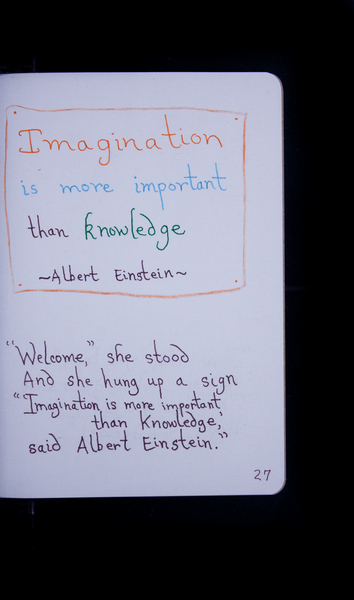 Imagination
is more important
than knowledge
~Albert Einstein~
“Welcome,” she stood
And she hung up a sign
“Imagination is more important
than knowledge,’
said Albert Einstein.”
27